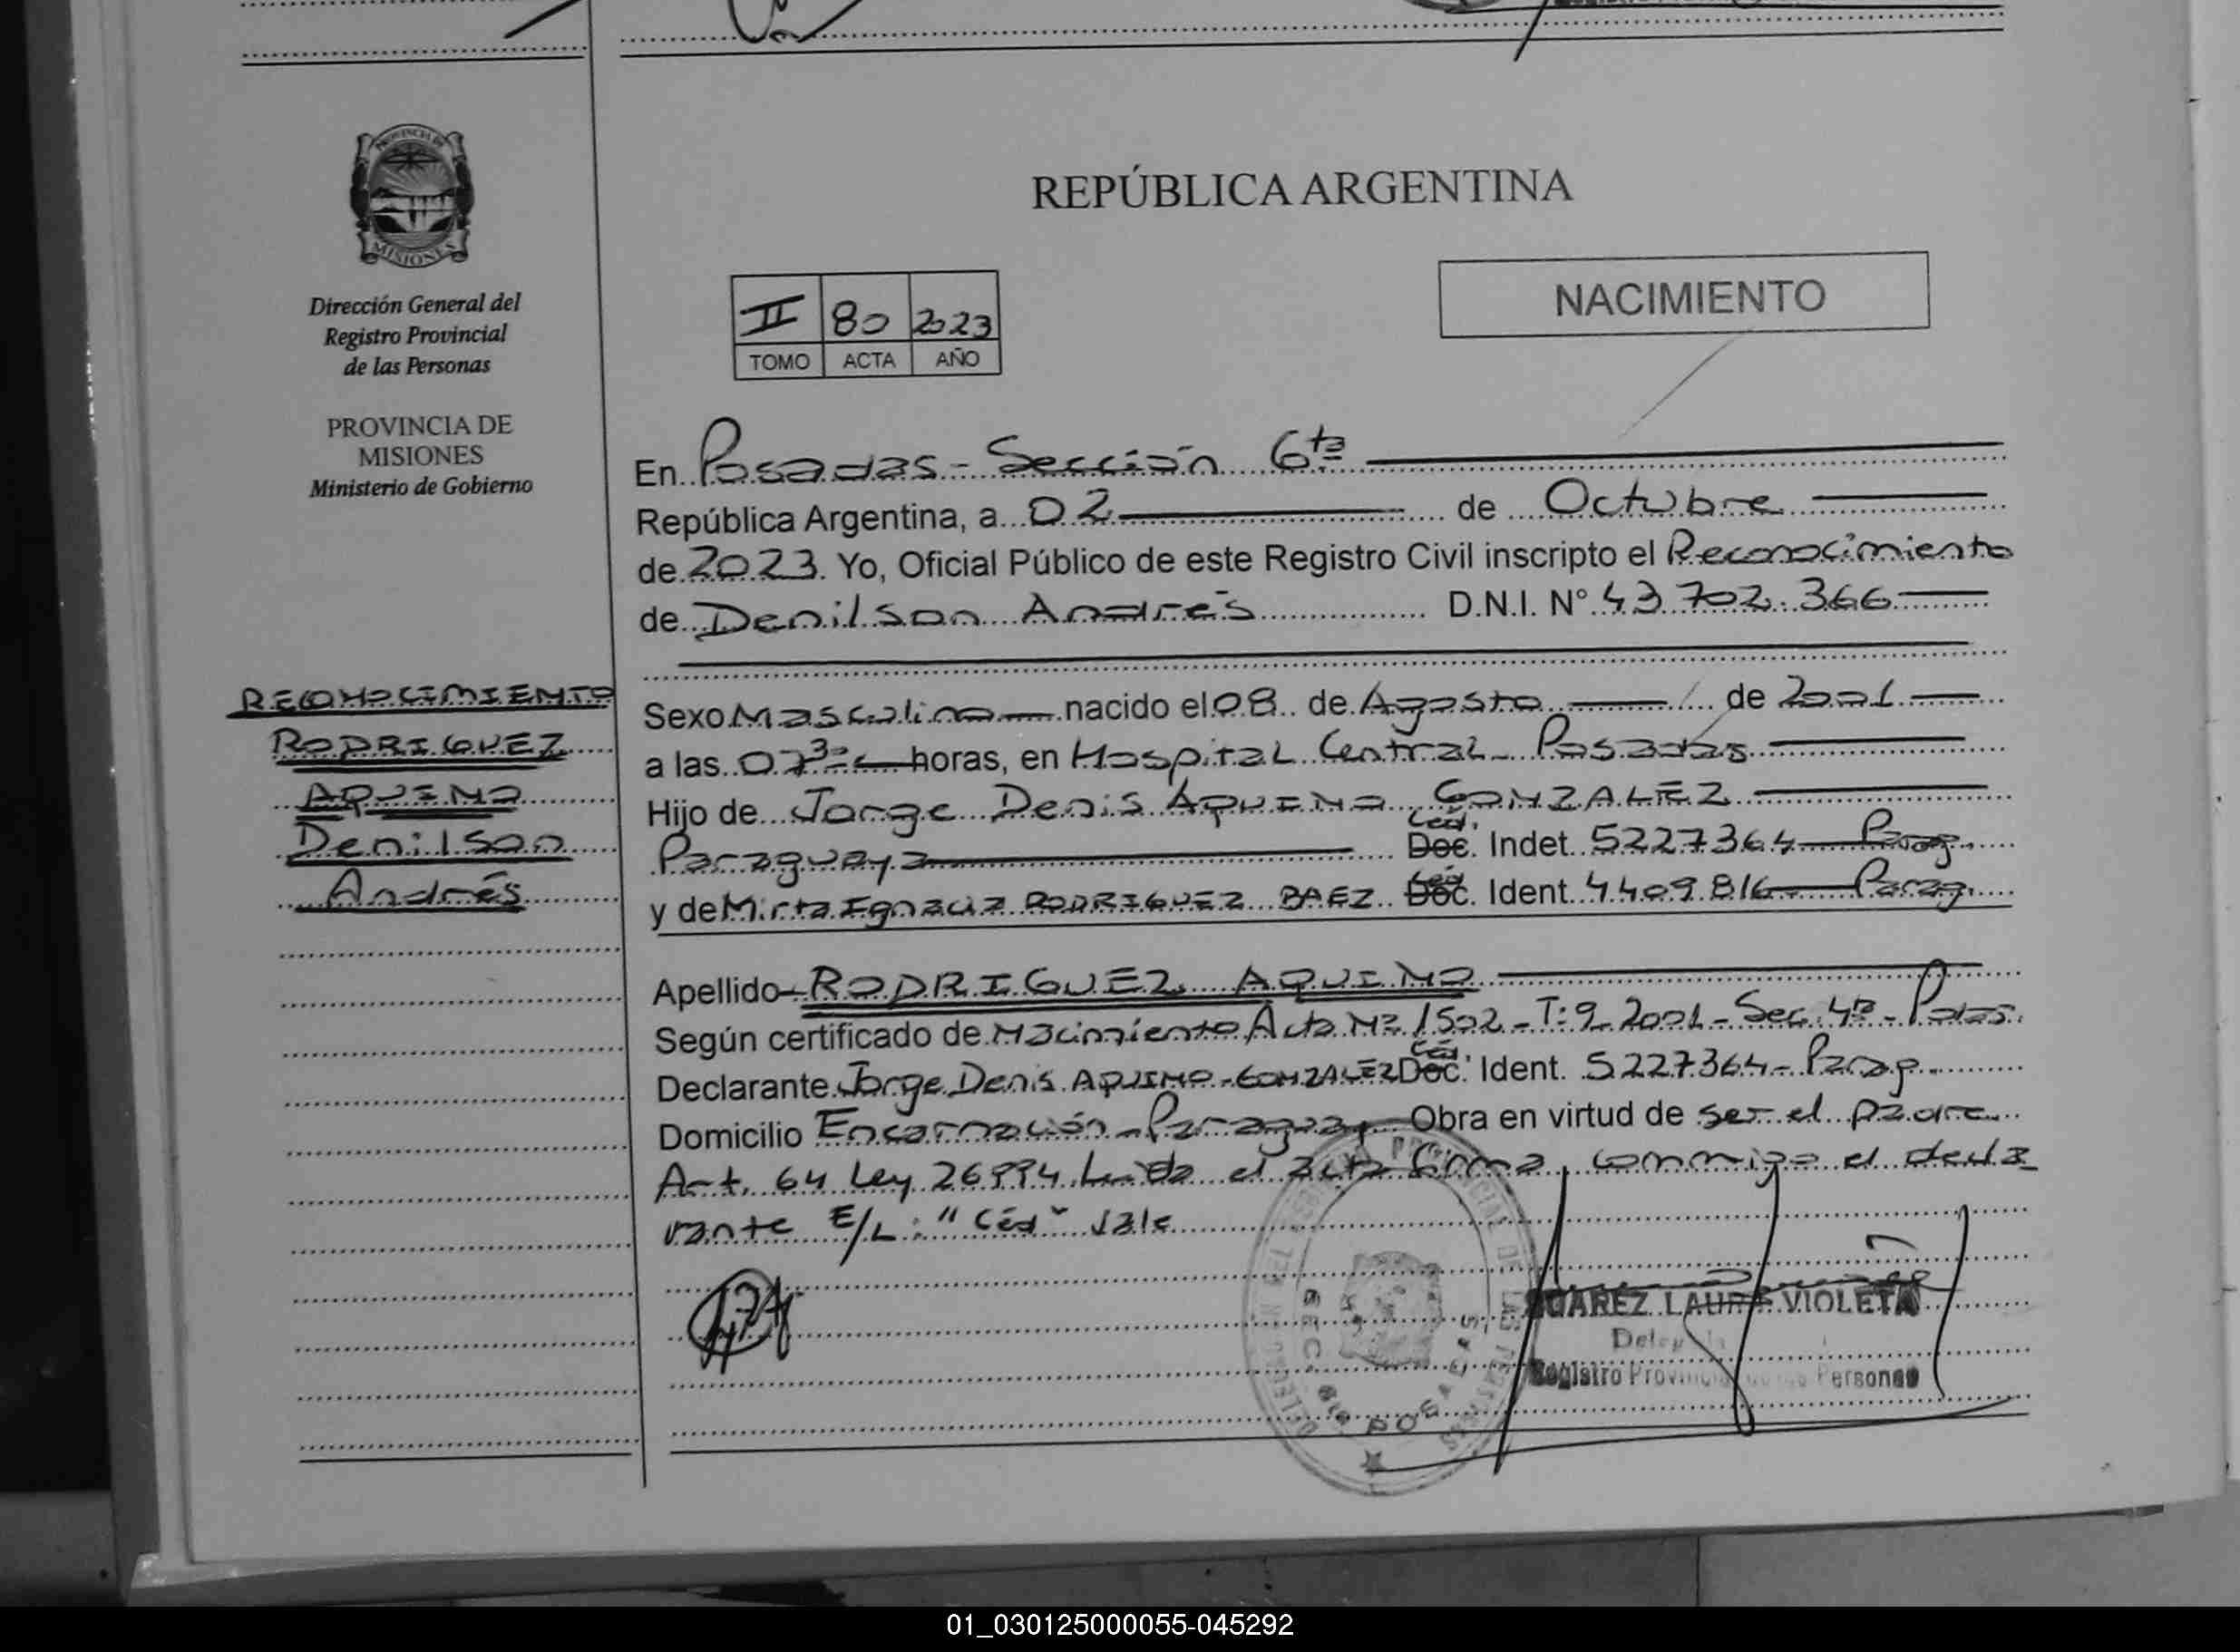 PROVINCIA DE
MISIONES
Dirección General del
Registro Provincial
de las Personas
PROVINCIA DE
MISIONES
Ministerio de Gobierno
RECONOCIMIENTO
RODRIGUEZ
AQUINO
Denilson
Andrés
REPÚBLICA ARGENTINA
NACIMIENTO
II 80 2023
TOMO ACTA AÑO
En Posadas - Sección 6ta
República Argentina, a 02 de Octubre
de 2023 Yo, Oficial Público de este Registro Civil inscripto el Reconocimiento
de Denilson Andrés D.N.I. N° 43.702.366
Sexo Masculino nacido el 08 de Agosto de 2001
a las 07 30 horas, en Hospital Central - Posadas
Hijo de Jorge Denis AQUINO GONZALEZ
Céd.
Paraguaya Doc. Indet. 5227364 - Parag.
Céd.
y de Mirta Ignacia RODRIGUEZ BAEZ Doc. Ident. 4409.816 - Parag.
Apellido RODRIGUEZ AQUINO
Según certificado de Nacimiento Acta Nº 1502 - T: 9 - 2001 - Sec. 4ta - Pdas.
Céd.
Declarante Jorge Denis AQUINO - GONZALEZ Doc. Ident. 5227364 - Parag.
Domicilio Encarnación - Paraguay Obra en virtud de ser el padre
Art. 64 Ley 26994 Leída el acta firma conmigo el decla
rante E/L: "Céd" vale
SUAREZ LAURA VIOLETA
Registro Provincial de las Personas
SEC. 6ta POSADAS
01_030125000055-045292